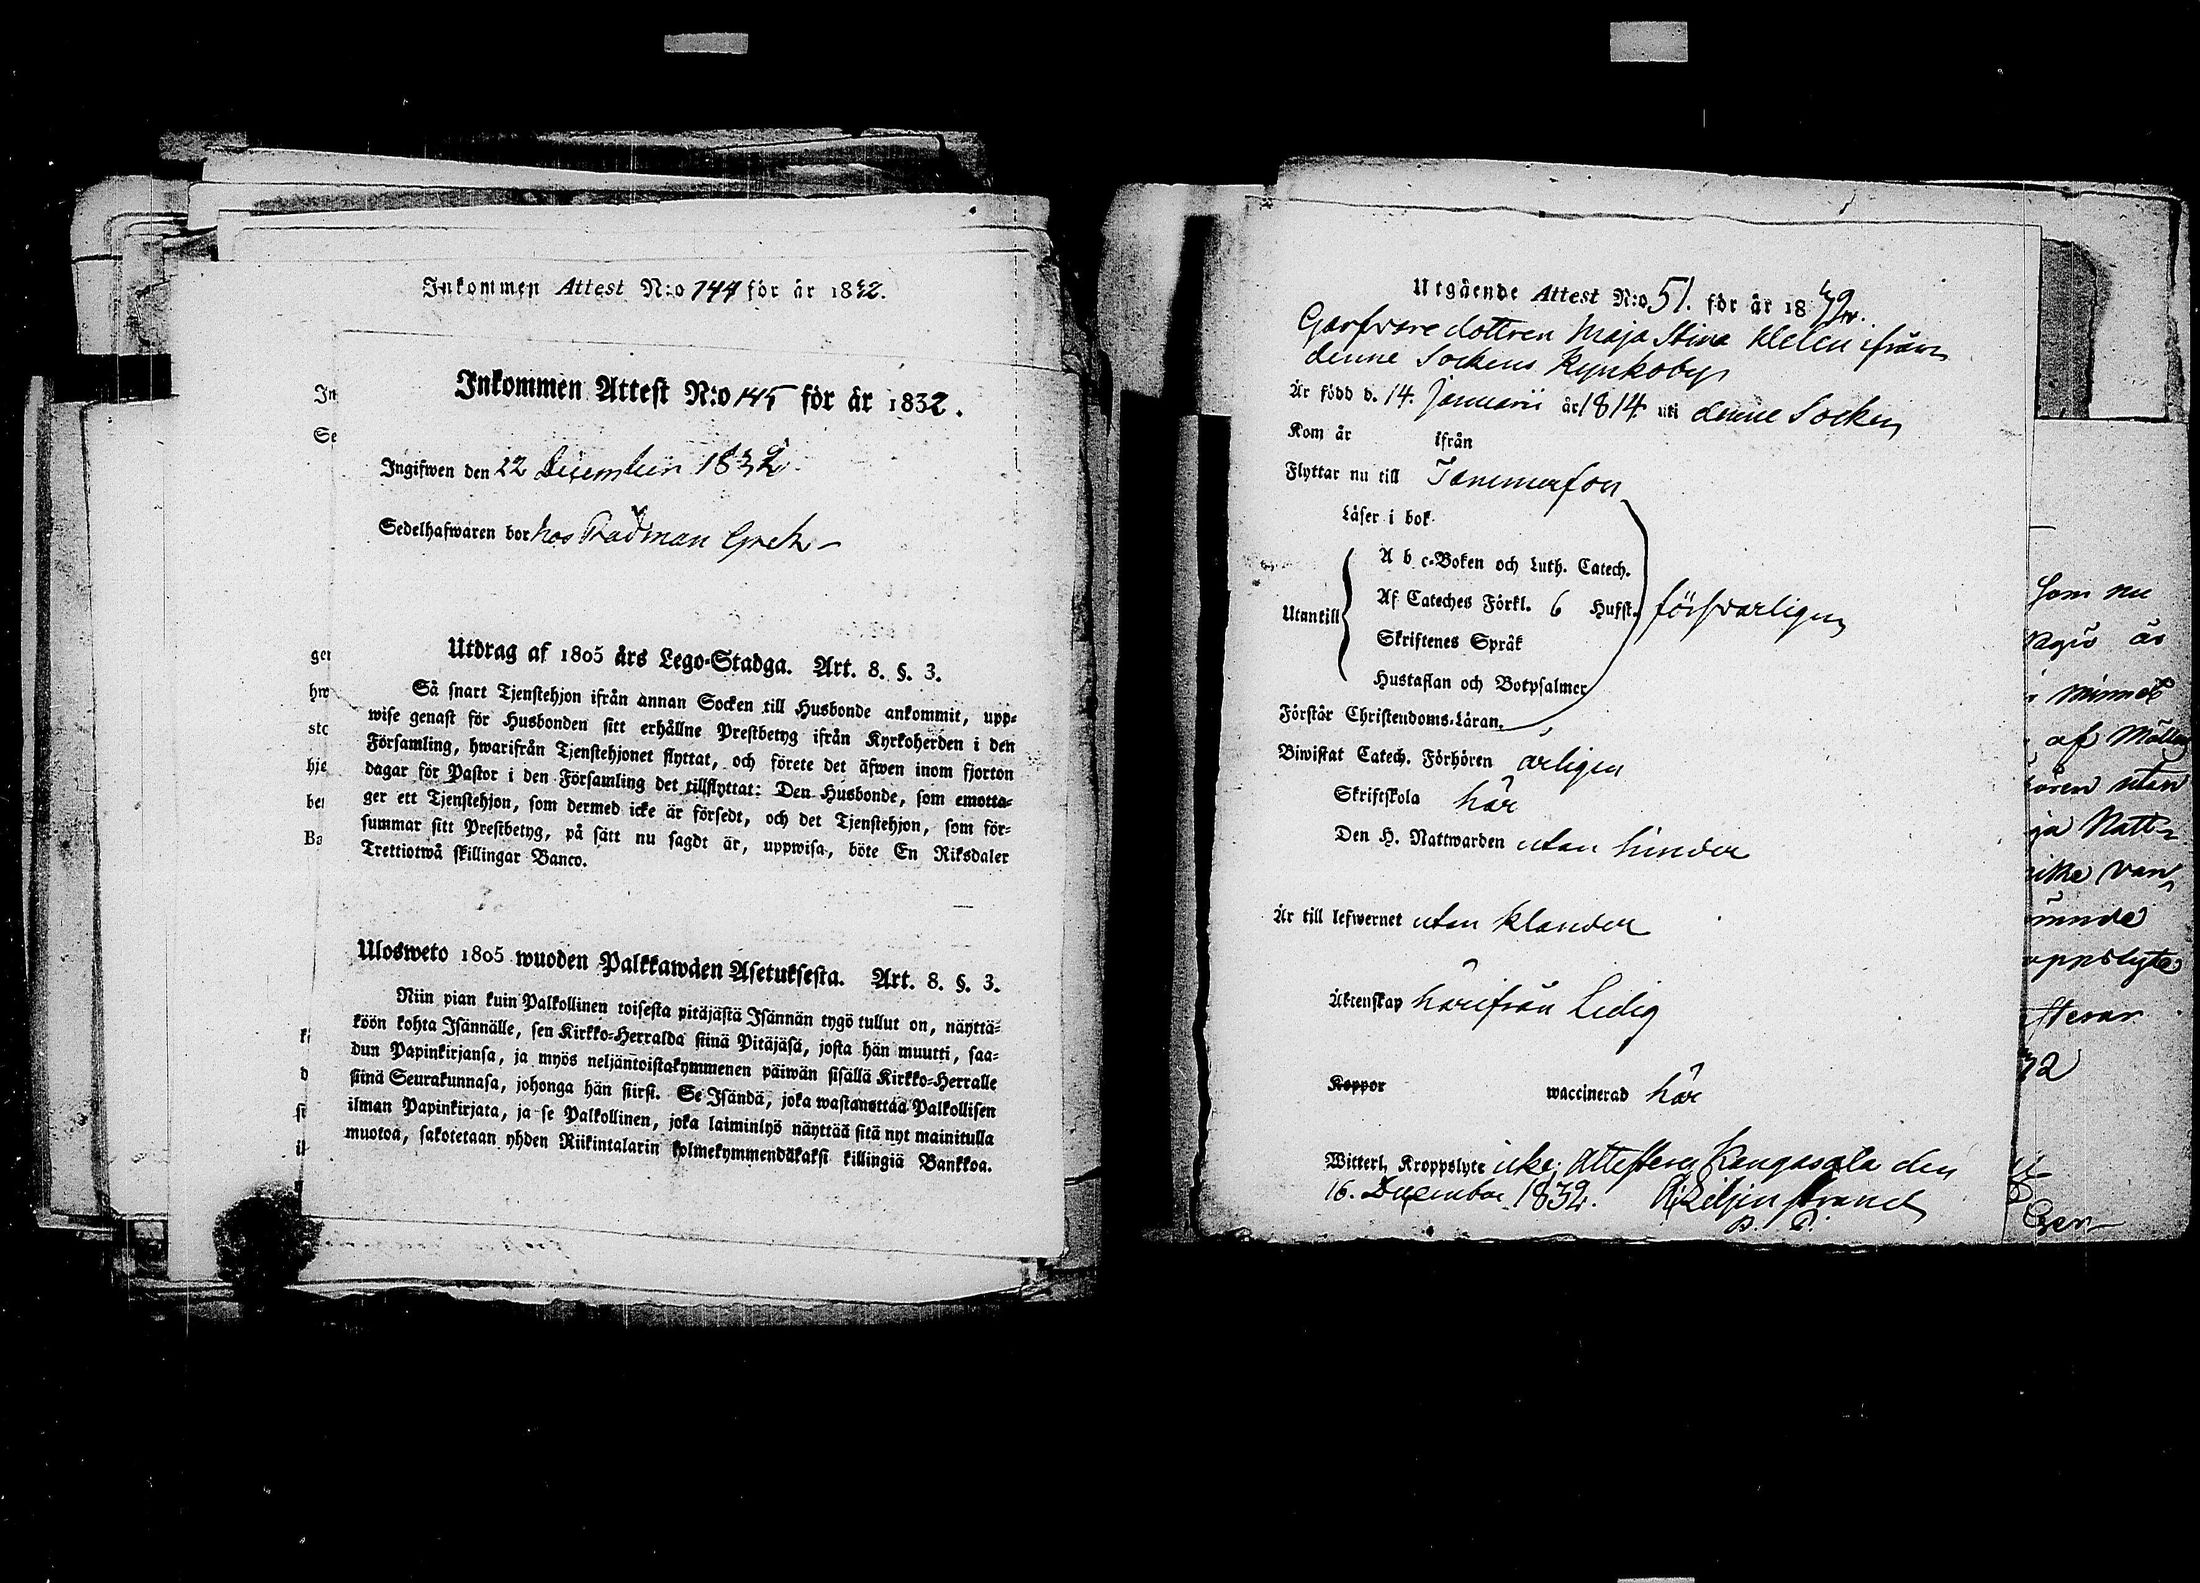 Inkommen Attest N:o 144 för år 1832.
Inkommen Attest N:o 145 för år 1832.
Ingifwen den 22 December 1832
Sedelhafwaren bor hos Rådman Greh
Utdrag af 1805 års Lego-Stadga. Art. 8. §. 3.
Så snart Tjenstehjon ifrån annan Socken till Husbonde ankommit, upp-
wise genast för Husbonden sitt erhållne Prestbetyg ifrån Kyrkoherden i den
Församling, hwarifrån Tjenstehjonet flyttat, och förete det äfwen inom fjorton
dagar för Pastor i den Församling det tillflyttat: Den Husbonde, som emotta-
ger ett Tjenstehjon, som dermed icke är försedt, och det Tjenstehjon, som för-
summar sitt Prestbetyg, på sätt nu sagdt är, uppwisa, böte En Riksdaler
Trettiotwå skillingar Banco.
Ulosweto 1805 wuoden Palkkawäen Asetuksesta. Art. 8. §. 3.
Niin pian kuin Palkollinen toisesta pitäjästä Isännän tygö tullut on, näyttä-
köön kohta Isännälle, sen Kirkko-Herralda siinä Pitäjäsä, josta hän muutti, saa-
dun Papinkirjansa, ja myös neljäntoistakymmenen päiwän sisällä Kirkko-Herralle
siinä Seurakunnasa, johonga hän siirsi. Se Isändä, joka wastanottaa Palkollisen
ilman Papinkirjata, ja se Palkollinen, joka laiminlyö näyttää sitä nyt mainitulla
muotoa, sakotetaan yhden Riikintalarin kolmekymmendäkaksi killingiä Bankkoa.
Utgående Attest N:o 51. för år 1832.
Garfvare dottren Maja Stina Helen ifrån
denne Sockens Kyrkoby
Är född d. 14. Januarii år 1814 uti denne Socken
Kom år ifrån
Flyttar nu till Tammerfors
Läser i bok
A b c-Boken och Luth. Catech.
Utantill Af Cateches Förkl. 6 Hufst. försvarligen
Skriftenes Språk
Hustaflan och Botpsalmer
Förstår Christendoms-Läran.
Biwistat Catech. Förhören årligen
Skriftskola här
Den H. Nattwarden utan hinder
Är till lefwernet utan klander
Äktenskap härifrån Ledig
Koppor waccinerad här
Witterl. Kroppslyte icke; Attesterar Kangasala den
16. December 1832. Liljenstrand
som nu
är
minnet
af
utan
Natt-
icke van
oppslyte
32